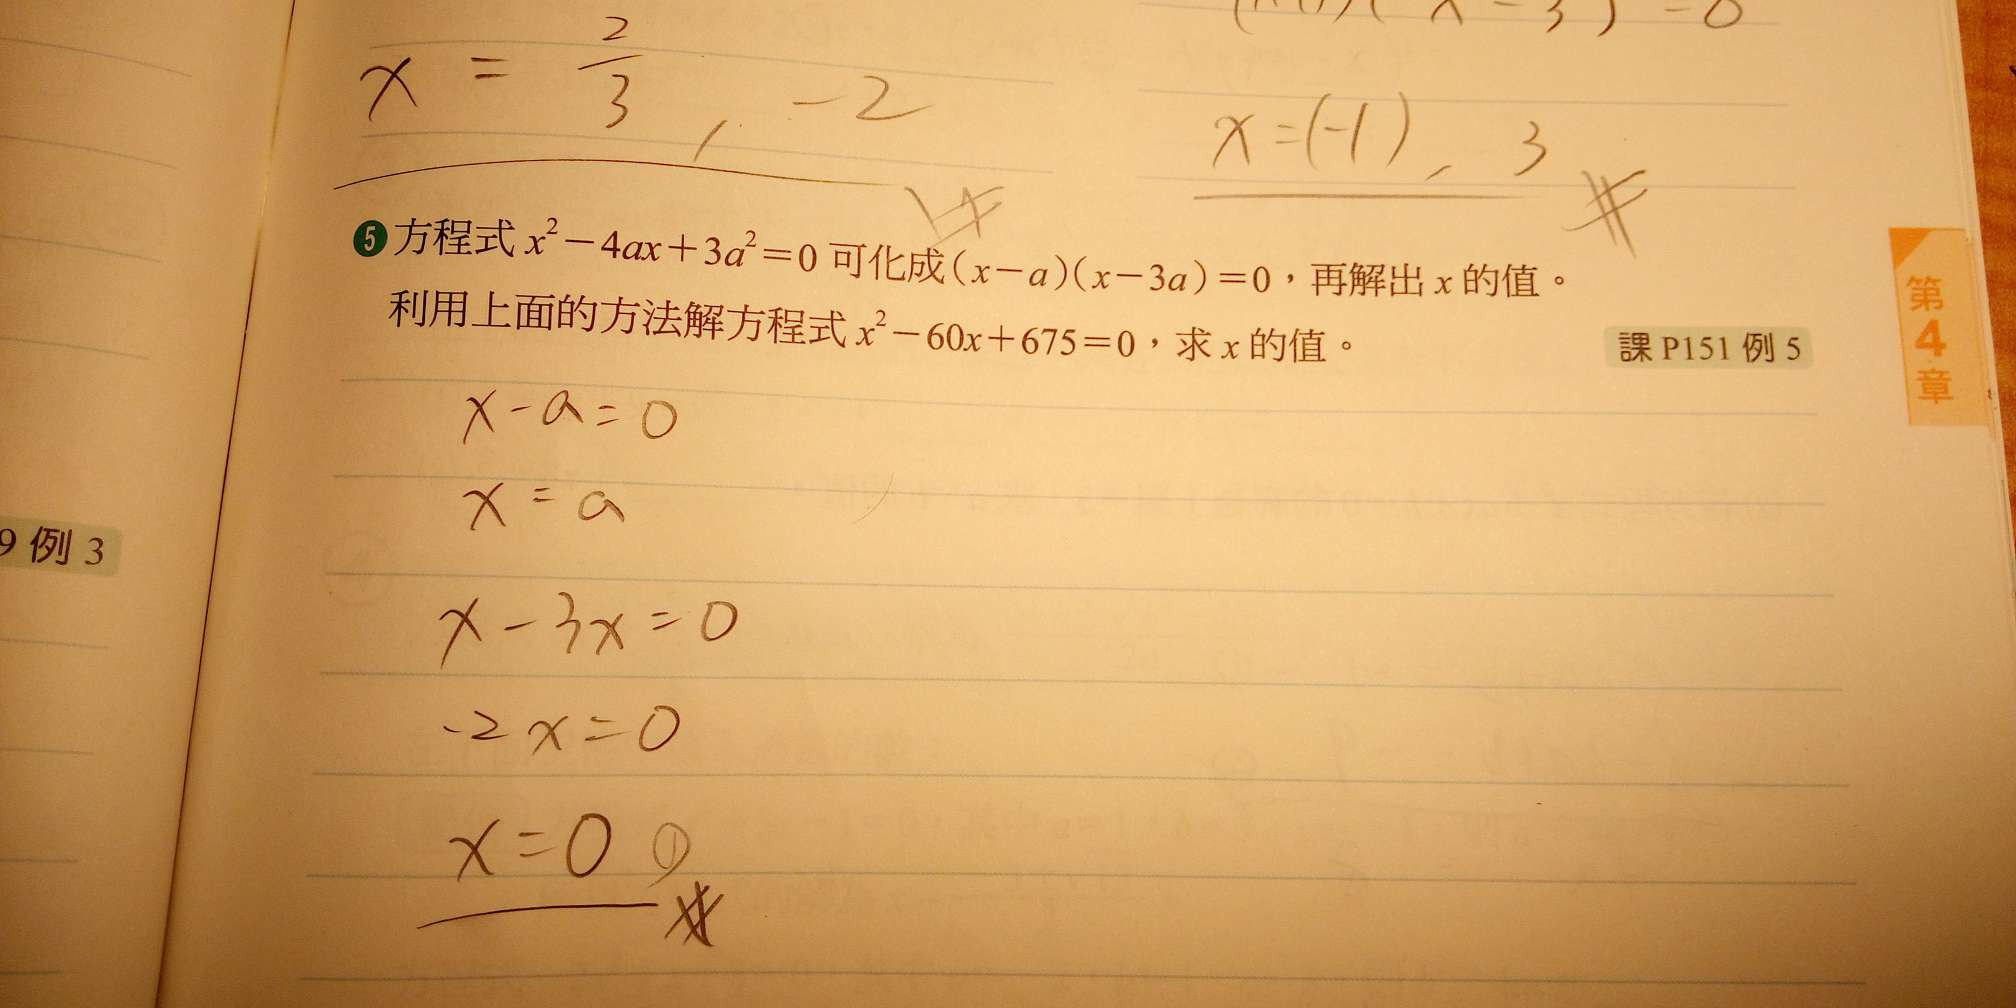 x = 2/3 , -2
x=(-1) , 3
❺方程式 x²−4ax+3a²=0 可化成(x−a)(x−3a)=0，再解出 x 的值。
利用上面的方法解方程式 x²−60x+675=0，求 x 的值。
課 P151 例 5
第4章
x-a=0
x=a
9 例 3
x-3x=0
-2x=0
x=0